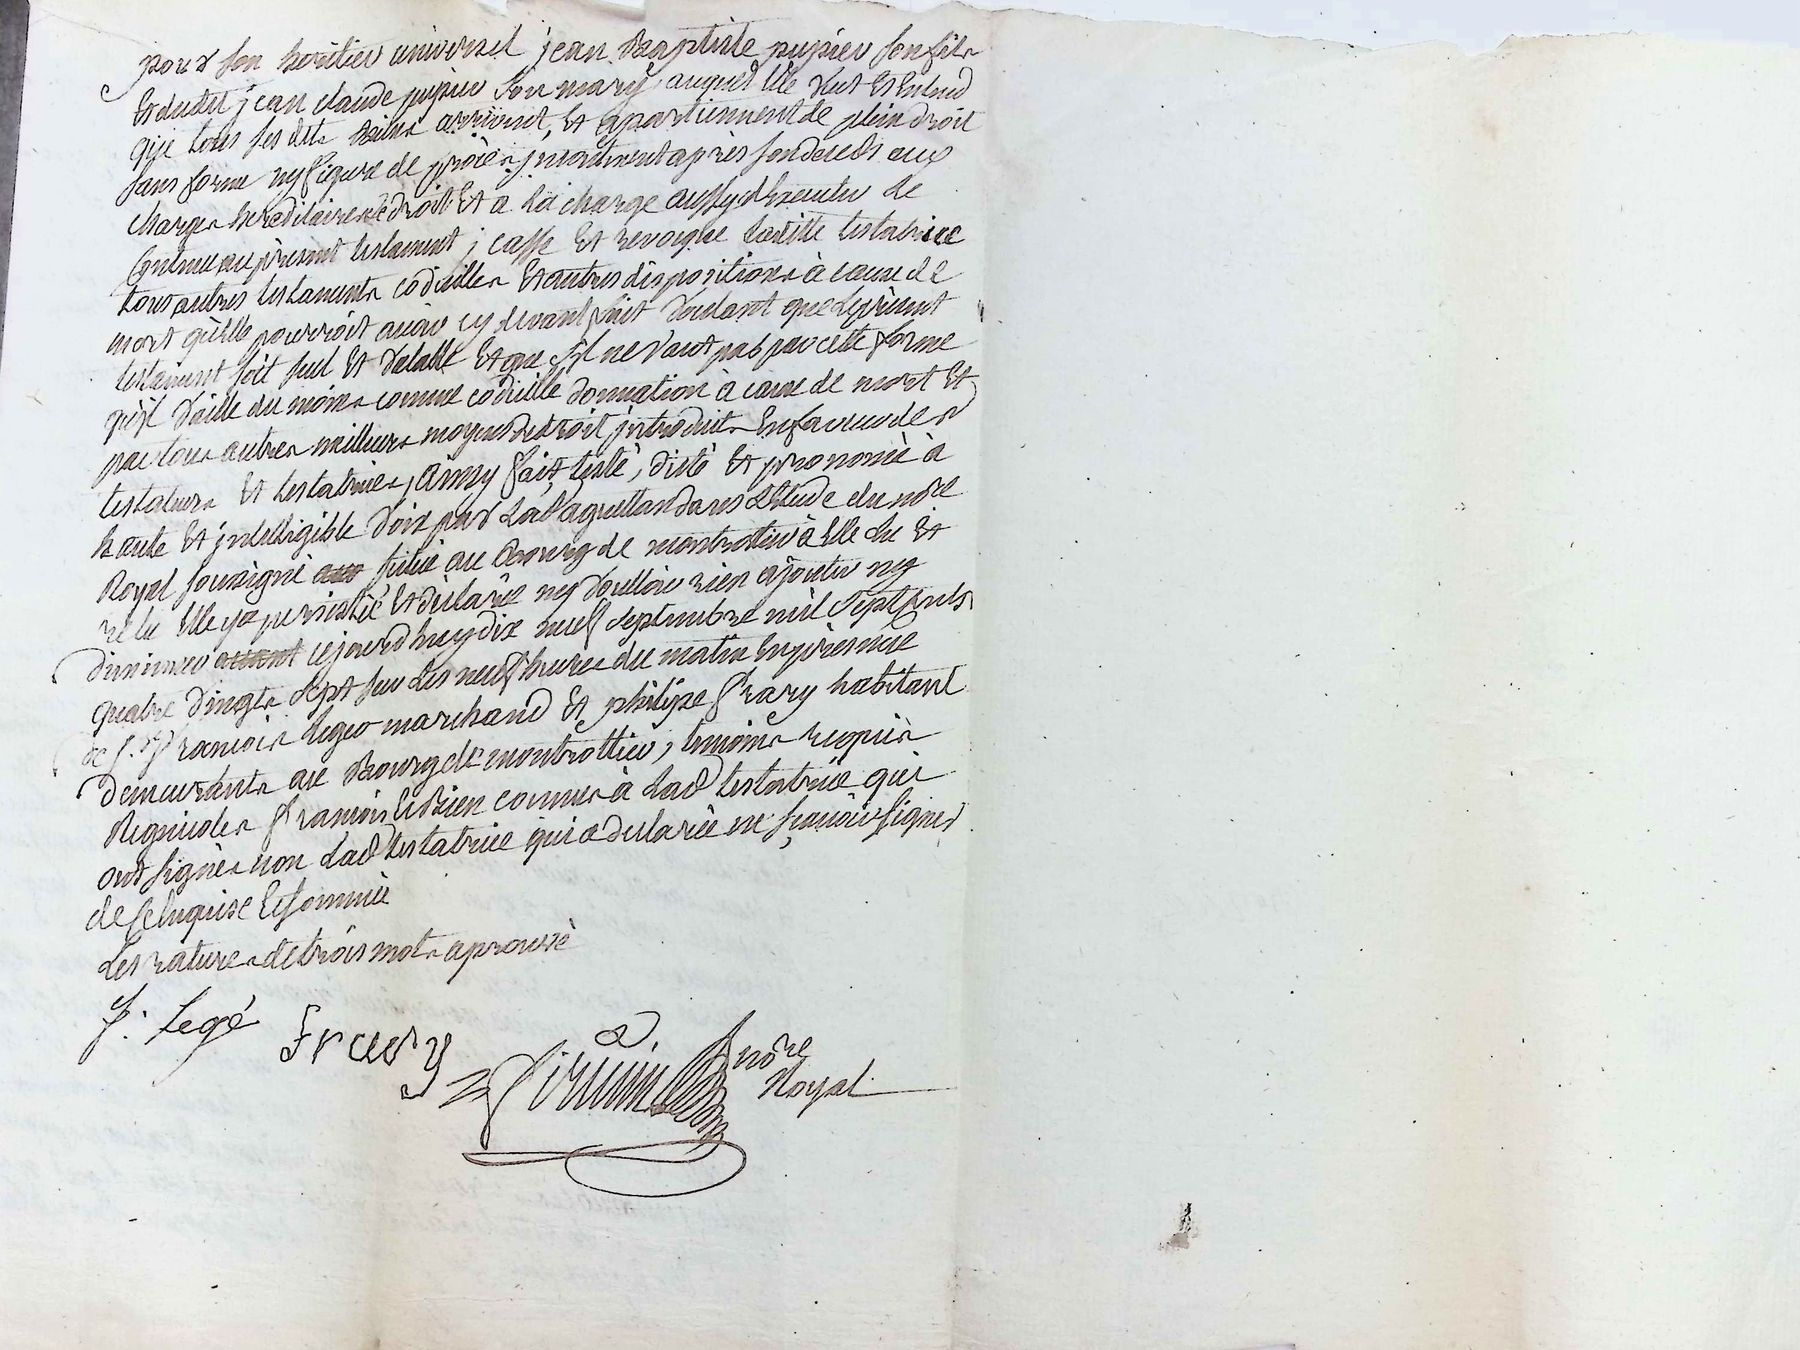 pour son heritier universel jean Baptiste pupier son fils
Et dudit jean claude pupier son mary, auquel Elle veut Et Entend
que tous ses dits biens arrivent, Et apartiennent de plein droit
sans forme ny figure de procès, jncontinent après son deceds aux
charges hereditaires de droit Et a la charge aussy d'Executer le
Contenu au present testament ; casse Et revoque laditte testatrice
tous autres testaments codicilles Et autres dispositions à cause de
mort qu'elle pourroit avoir cy devant fait Voulant que le present
testament soit seul Et valable Et que s'il ne vaut pas par cette forme
qu'il vaille du moins comme codicille donnation à cause de mort Et
par tous autres meilleurs moyens de droit jntroduits En faveur des
testateurs Et testatrices, ainsy fait, testé, dicté Et prononcé à
haute Et jntelligible Voix par lad dans l'Etude du nore
Royal soussigné située au Bourg de montrottier à Elle lu Et
relu Elle y a persisté Et déclarée ny vouloir rien ajouter ny
diminuer cejourd'huy dix neuf Septembre mil Sept cents
quatre Vingts Sept sur les neuf heures du matin En présence
de s.r francois leger marchand Et philipe frary habitant
demeurants au Bourg de montrottier, temoins requis
Regnicoles francois Et Bien connus à lad testatrice qui
ont signés non lad testatrice qui a declarée ne sçavoir signer
de ce Enquise Et sommée
Les ratures de trois mots aprouvé
f. Legé
Frary
nore
Royal